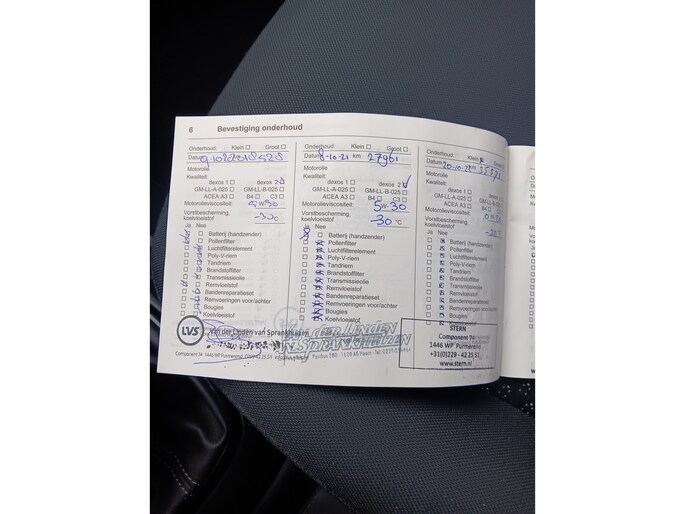 6 Bevestiging onderhoud
Onderhoud: Klein Groot
Datum
Motorolie
Kwaliteit:
dexos 1 dexos 2
GM-LL-A-025 GM-LL-B-025
ACEA A3 B4 C3
Motorolieviscositeit: 5W30
Vorstbescherming, koelvloeistof -30°C
Ja Nee
Batterij (handzender)
Pollenfilter
Luchtfilterelement
Poly-V-riem
Tandriem
Brandstoffilter
Transmissieolie
Remvloeistof
Bandenreparatieset
Remvoeringen voor/achter
Bougies
Koelvloeistof
LVS Van der Linden van Sprankhuizen
Onderhoud: Klein Groot
Datum 8-10-21 km 27961
Motorolie
Kwaliteit:
dexos 1 dexos 2
GM-LL-A-025 GM-LL-B-025
ACEA A3 B4 C3
Motorolieviscositeit: 5W-30
Vorstbescherming, koelvloeistof -30°C
Ja Nee
Batterij (handzender)
Pollenfilter
Luchtfilterelement
Poly-V-riem
Tandriem
Brandstoffilter
Transmissieolie
Remvloeistof
Bandenreparatieset
Remvoeringen voor/achter
Bougies
Koelvloeistof
DER LINDEN
SPRANKHUIZEN
Onderhoud: Klein Groot
Datum km
Motorolie
Kwaliteit:
dexos 1 dexos 2
GM-LL-A-025 GM-LL-B-025
ACEA A3 B4 C3
Motorolieviscositeit:
Vorstbescherming, koelvloeistof
Ja Nee
Batterij (handzender)
Pollenfilter
Luchtfilterelement
Poly-V-riem
Tandriem
Brandstoffilter
Transmissieolie
Remvloeistof
Bandenreparatieset
Remvoeringen voor/achter
Bougies
Koelvloeistof
STERN
Component
1446 WP Purmerend
+31(0)229 - 42 25 51
www.stern.nl